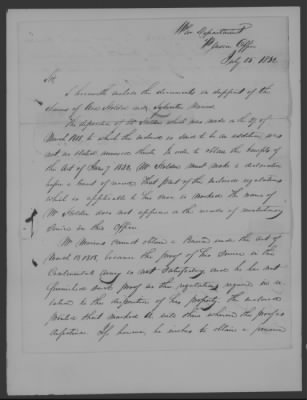 War Department
Pension Office
July 25 1832
Sir,
I herewith enclose the documents in support of the
claims of Ben Holden and Sylvester Marcus
The deposition of Mr Holden which was made under the of
March 1818, to which the enclosed is said to be an addition, was
not as stated annexed thereto. In order to obtain the benefits of
the Act of June 7 1832, Mr Holden must make a declaration
before a Court of record. That part of the enclosed regulations
which is applicable to his case is marked. The name of
Mr Holden does not appear on the records of revolutionary
Service in this Office
Mr Marcus cannot obtain a Pension under the Act of
March 18 1818, because the proof of his Service in the
Continental Army is not Satisfactory and he has not
furnished such proof as the regulations require in re-
lation to the disposition of his property. The enclosed
printed sheet marked A will show wherein the proof is
defective. If, however, he wishes to obtain a pension